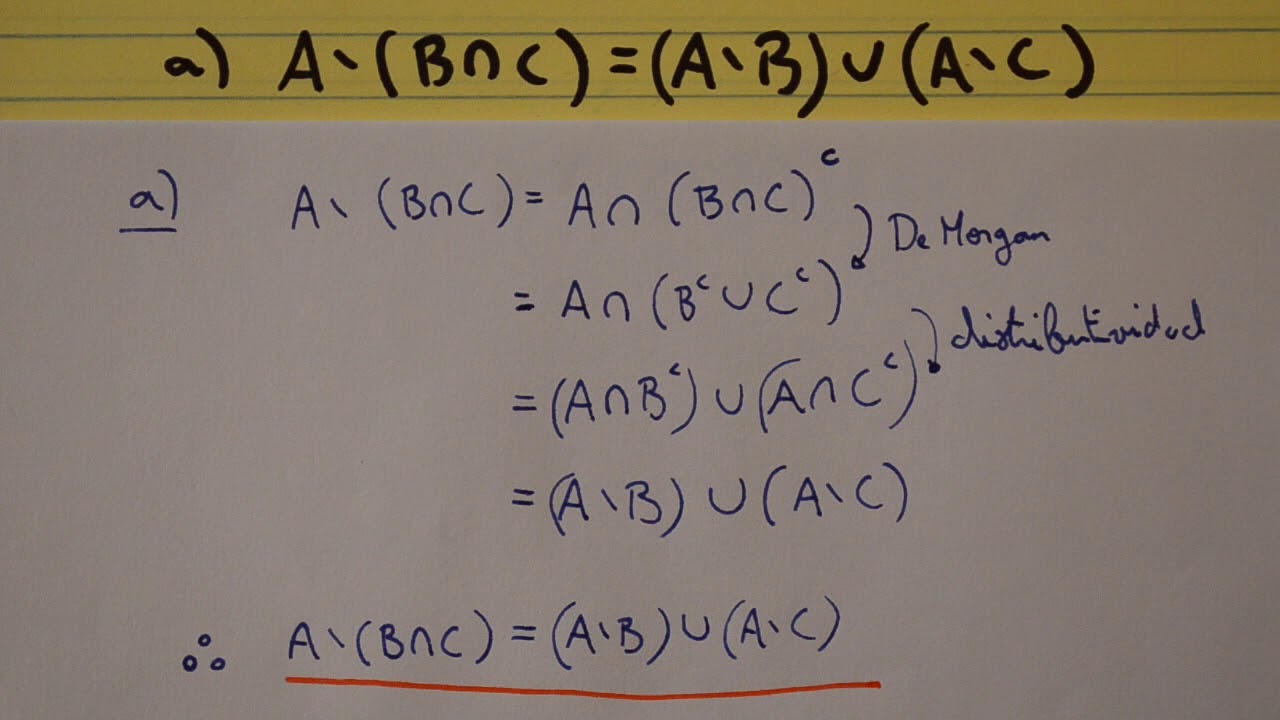 a) A∖(B∩C)=(A∖B)∪(A∖C)
a) A∖(B∩C)=A∩(B∩C)ᶜ
De Morgan
=A∩(Bᶜ∪Cᶜ)
distributividad
=(A∩Bᶜ)∪(A∩Cᶜ)
=(A∖B)∪(A∖C)
∴ A∖(B∩C)=(A∖B)∪(A∖C)